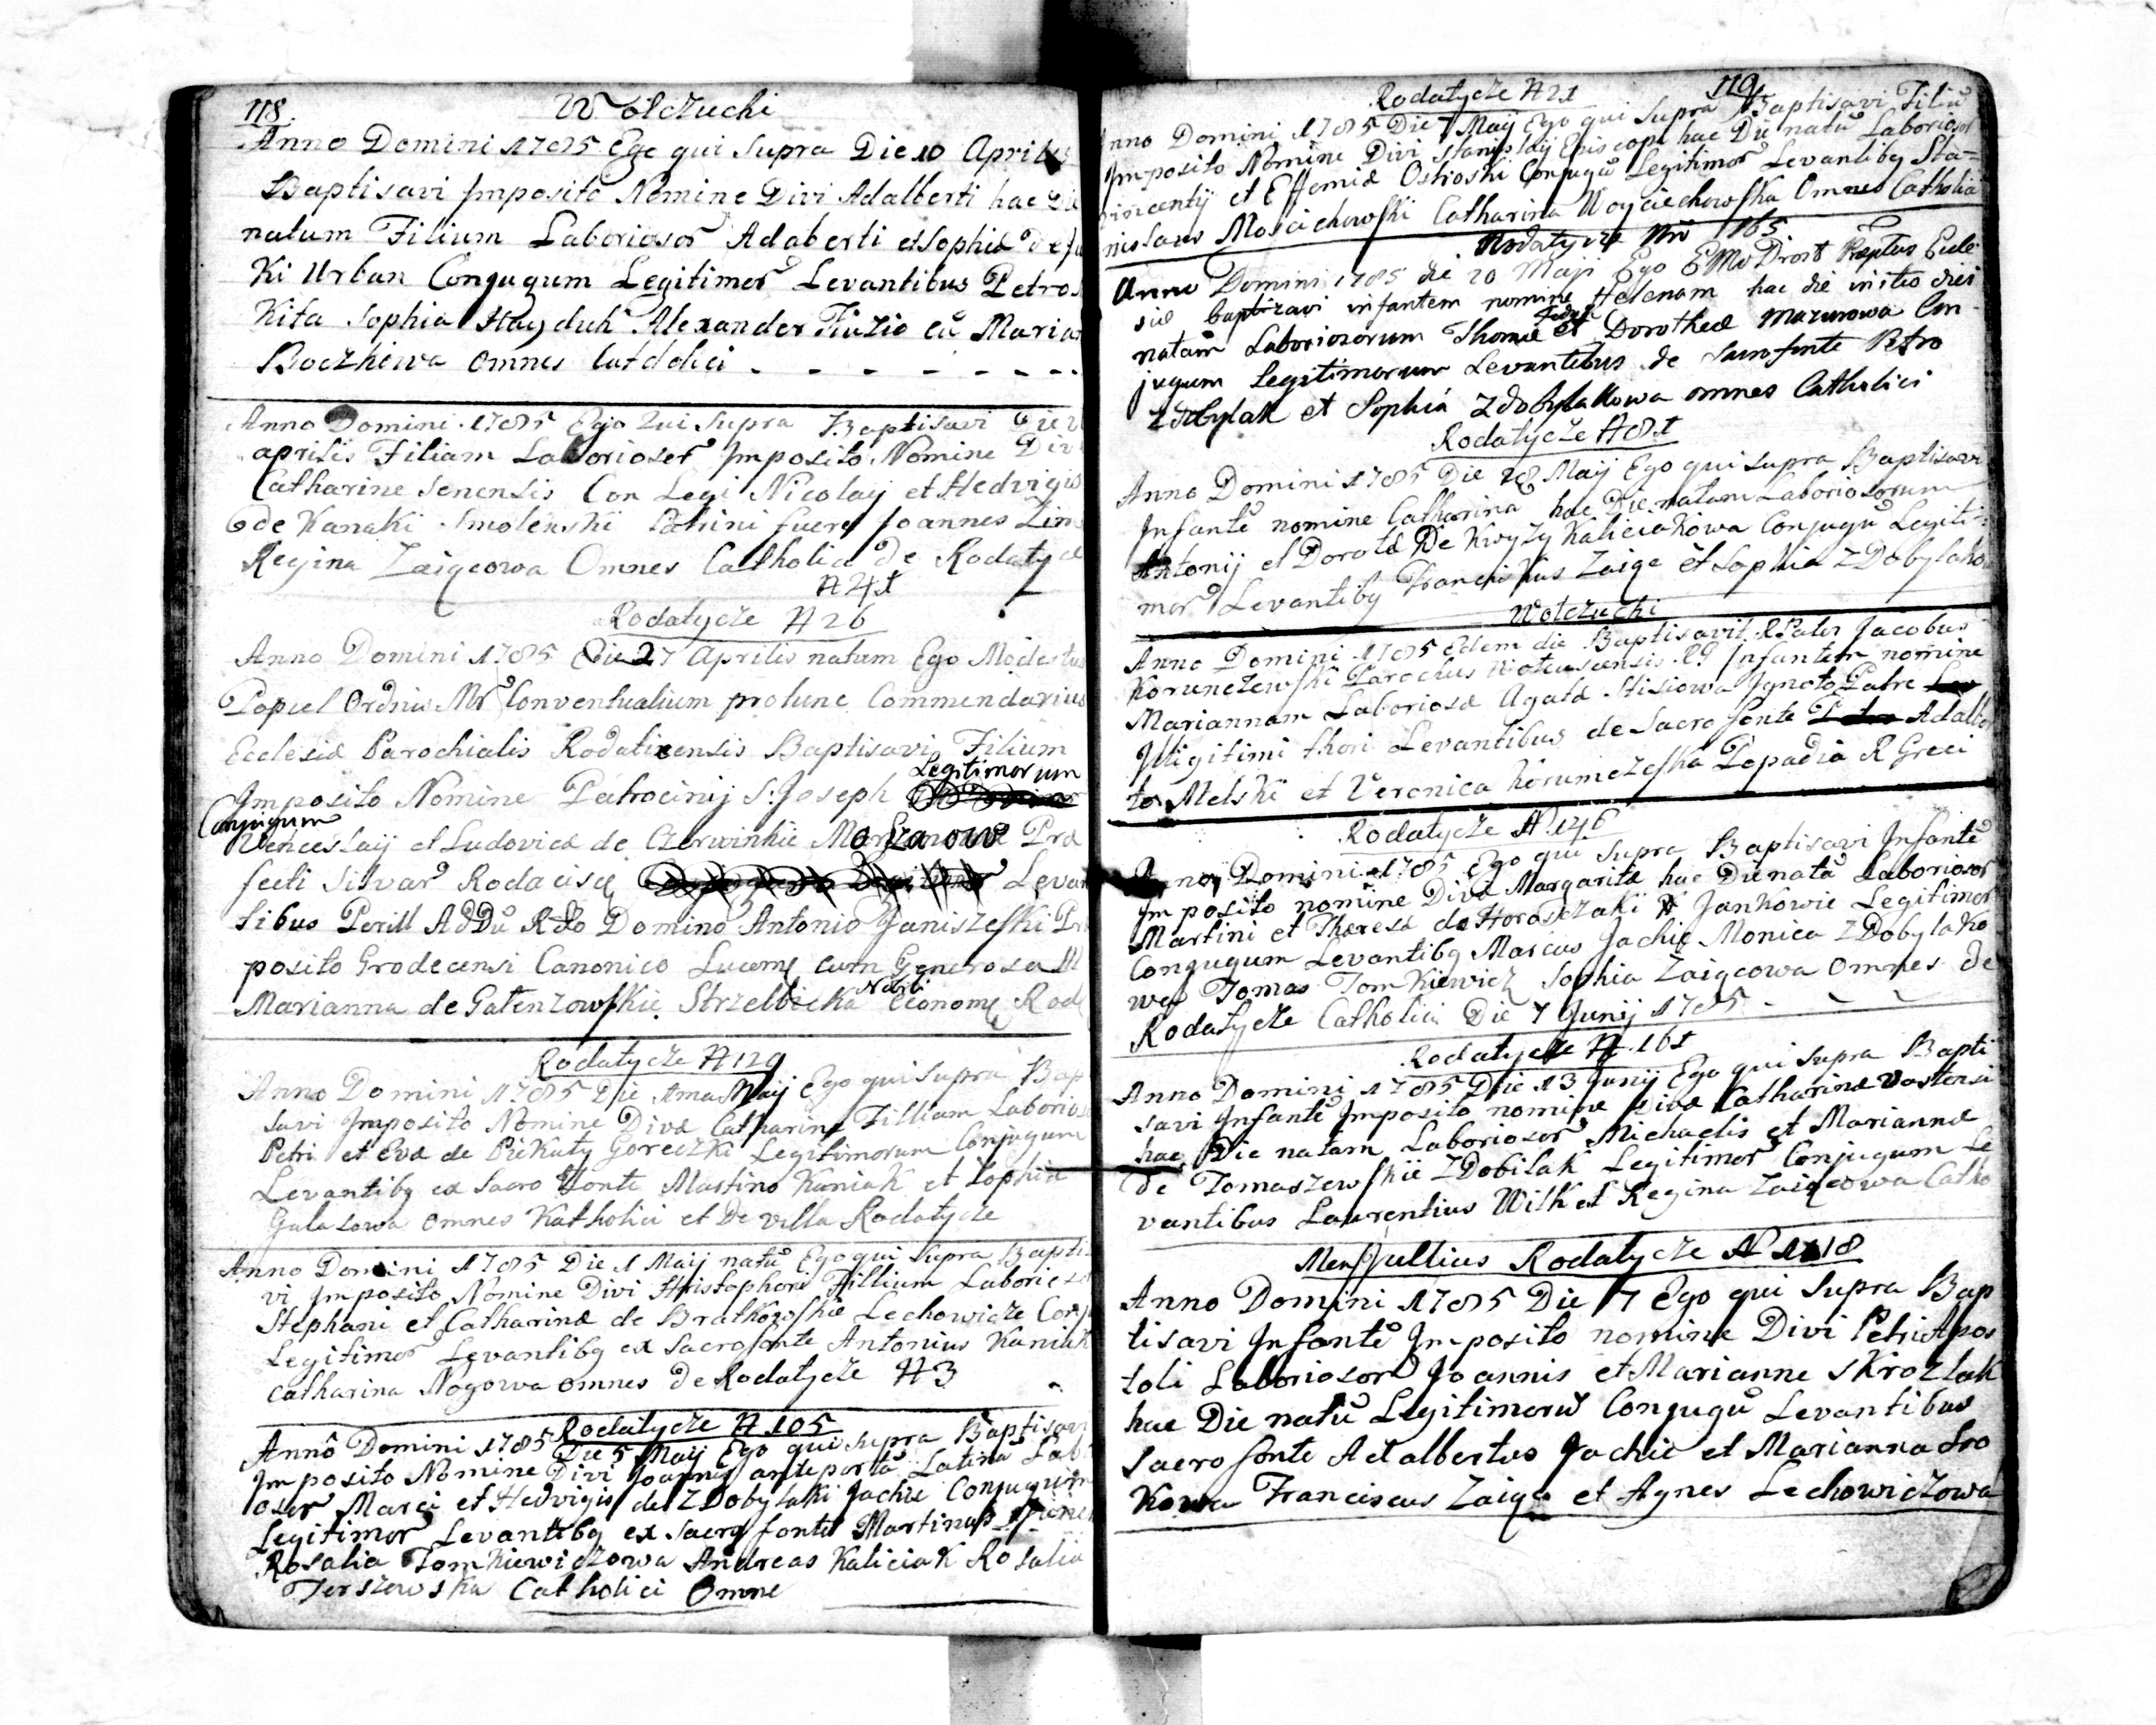 118. Wolczuchi
Anno Domini 1785 Ego qui Supra Die 10 Aprilis
Baptisavi Imposito Nomine Divi Adalberti hac Die
natum Filium Laboriosor Adaberti et Sophiæ de
Ki Urban Conjugum Legitimor Levantibus Petro
Kita Sophia Hayduk Alexander cu Marian
Boczkiewa omnes
Anno Domini 1785 Ego Qui Supra Baptisavi Die
aprilis Filiam Laborioser Imposito Nomine Div
Catharine Senensis Con Legi Nicolaij et Hedvigis
de Kanaki Smolenski Patrini fuere Joannes
Regina Zaigcowa Omnes Catholici de Rodatycz
N 41
Rodatycze N 26
Anno Domini 1785 Die 27 Aprilis natum Ego Modestus
Popiel Ordnis Conventualium protunc Commendarius
Ecclesiæ Parochialis Rodaticensis Baptisavi Filium
Legitimorum
Imposito Nomine Patrocinij S: Joseph
Conjugum
Venceslaij et Ludovicæ de Czerwinkie Præ
fecti Silvar Rodacisq Levan
tibus Perill AdDu Rdo Domino Antonio Janiszefki
posito Grodecensi Canonico cum Generosa
Nobili
Marianna de Gatenzowskie Strzelbicka Econome Rod
Rodatycze N 129
Anno Domini 1785 Die Maij Ego qui Supra Bap
savi Imposito Nomine Divæ Catharinæ Filliam Laborios
Petri et Evæ de Piekuty Goreczki Legitimorum Conjugum
Levantibg ex Sacro Fonte Martino Kaniak et Sophia
Galasowa omnes Katholici et De villa Rodatycze
Anno Domini 1785 Die 1 Maij natu Ego qui Supra Bapti
vi Imposito Nomine Divi Hristophori Fillium Laborios
Stephani et Catharinæ de Bratkowskie Lechowicze Conj
Legitimor Levantibg ex Sacro fonte Antonius Kaniak
Catharina Nogowa omnes De Rodatycze N 3
Rodatycze N 105
Anno Domini 1785 Die 5 Maij Ego qui Supra Baptisav
Imposito Nomine Divi Joannis ante porta Latina Labo
osor Marci et Hedvigis de ZDobylaki Jachie Conjugum
Legitimor Levantibg ex Sacro fonte Martinus
Rosalia Tomkiewiczowa Andreas Kaliciak Rosalia
Terszewska Catholici Omne
Rodatycze N 21 119
Anno Domini 1785 Die 7 Maij Ego qui Supra Baptisavi Filiu
Imposito Nomine Divi Stanislaij Episcopi hac Die natu Laboriosor
Vincentij et Effemiæ Ostroski Conjugu Legitimor Levantibg Sta=
nislaus Catharina Woyciechowska Omnes Catholici
Rodatycze Nro 165
Anno Domini 1785 die 20 Maji Ego Drost Præptus Ecle
siæ baptizavi infantem nomine Helenam hac die
natam Laboriosorum Thomæ et Dorotheæ Mazurowa Con
jugum Legitimorum Levantibus de Sacro fonte Petro
Zdobylak et Sophia Zdobylakowa omnes Catholici
Rodatycze N 81
Anno Domini 1785 Die 28 Maij Ego qui supra Baptisavi
Infante nomine Catharina hac Die natam Laboriosorum
Antonij et Dorotæ De Kwyzy Kaliciakowa Conjugu Legiti=
mor Levantibg Franciskus Zaige et Sophia ZDobylako
Wolczuchi
Anno Domini 1785 Edem die Baptisavit R Pater Jacobus
Korunczewski Parochus RG Infantem nomine
Mariannam Laboriosæ Agatæ Stisiowa Ignoto Patre
Illigitimi thori Levantibus de Sacro fonte Adalber
to Melski et Veronica Popadia R Greci
Rodatycze N 146
Anno Domini 1785 Ego qui Supra Baptisavi Infante
Imposito nomine Divæ Margaritæ hac Die natu Laboriosor
Martini et Theresæ de Horaszczaki Jankowie Legitimor
Conjugum Levantibg Marcus Jachie Monica ZDobylako
wa Tomas Tomkiewicz Sophia Zaigcowa omnes De
Rodatycze Catholici Die 7 Junij 1785
Rodatycze N 161
Anno Domini 1785 Die 13 Junij Ego qui supra Bapti
savi Infante Imposito nomine Divæ Catharinæ
hac Die natam Laboriosor Michaelis et Mariannæ
de Tomaszewskie ZDobilaki Legitimor Conjugum Le
vantibus Laurentius Wilk et Regina Zaigcowa Catho
Mens Jullius Rodatycze N 118
Anno Domini 1785 Die 7 Ego qui Supra Bap
tisavi Infante Imposito nomine Divi Petri Apos
toli Laboriosor Joannis et Marianne Skrozlak
hac Die natu Legitimoru Conjugu Levantibus
Sacro fonte Adalbertus Jachie et Marianna Sro
Kowa Franciscus Zaige et Agnes Lechowiczowa